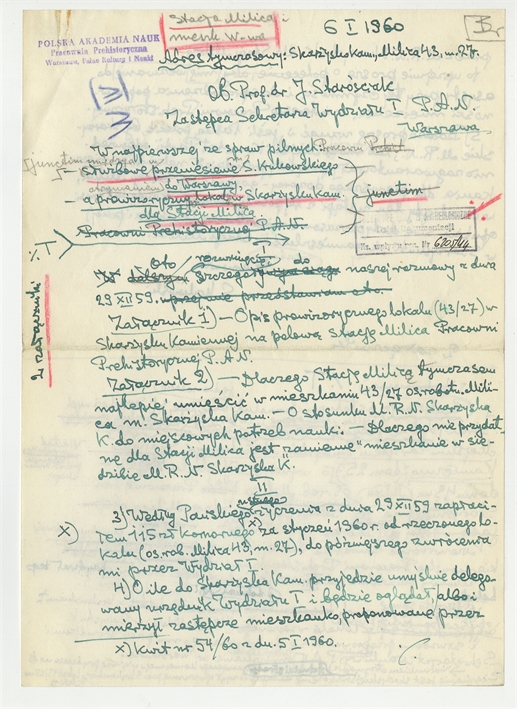 POLSKA AKADEMIA NAUK
Pracownia Prehistoryczna
Warszawa, Pałac Kultury i Nauki
Stacja Milica i
mieszk W-wa
6 I 1960
B
Adres tymczasowy: Skarżysko Kam., Milica 43, m. 27.
Ob. Prof. dr J. Starościak
Zastępca Sekretarza Wydziału I P.A.N.
Warszawa
W najpierwszej ze spraw pilnych
służbowe przeniesienie S. Krukowskiego
do Warszawy,
a prowizoryczny lokal w Skarżysku Kam.
dla Stacji Milica
Pracowni Prehistorycznej P.A.N.
junctim
Nr 6205/44
I
Oto rozwinięcie do
szczegół naszej rozmowy z dnia
29 XII 59 uprzejmie przedstawiam oto.
2 załączniki
Załącznik 1) – Opis prowizorycznego lokalu (43/27) w
Skarżysku Kamiennej na polową stację Milica Pracowni
Prehistorycznej P.A.N.
Załącznik 2) – Dlaczego Stację Milicą tymczasem
najlepiej umieścić w mieszkaniu 43/27 os. robotn. Mili-
ca m. Skarżyska Kam. – O stosunku M.R.N. Skarżyska
K. do miejscowych potrzeb nauki. – Dlaczego nieprzydat-
ne dla Stacji Milica jest "zamienne" mieszkanie w sie-
dzibie M.R.N. Skarżyska K.
II
3) Według Pańskiego życzenia z dnia 29 XII 59 zapłaci-
x) łem 115 zł komornego x) za styczeń 1960 r. od rzeczonego lo-
kalu (os. rob. Milica 43, m. 27), do późniejszego zwrócenia
mi przez Wydział I.
4) O ile do Skarżyska Kam. przyjedzie umyślnie delego-
wany urzędnik Wydziału I i będzie oglądał, albo i
mierzył zastępcze mieszkanko, proponowane przez
x) Kwit nr 54/60 z dn. 5 I 1960.